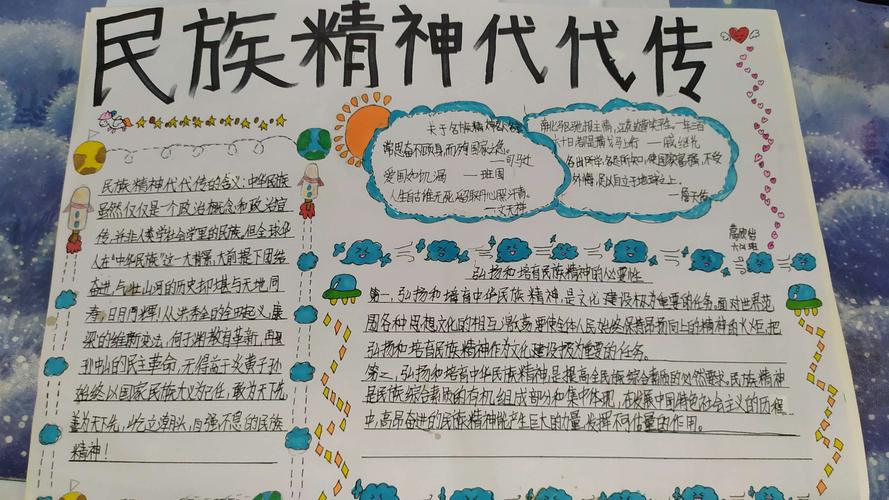 民族精神代代传
民族精神代代传的含义:中华民族
虽然仅仅是一个政治概念和政治宣
传,并非人类学社会学里的民族。但全球华
人在“中华民族”这一大背景、大前提下团结
奋进,与壮山河的历史却堪与天地同
寿、日月同辉!从洪秀全的金田起义,康
梁的维新变法,
孙中山的民主革命,无得益于炎黄子孙
始终以国家民族大义为己任,敢为天下先,
善为天下先,屹立潮头,自强不息的民族
精神!
关于名族精神的名言
常思奋不顾身,而殉国家之急。
——司马迁
爱国如饥渴 ——班固
人生自古谁无死,留取丹心照汗青。
——文天祥
南北驱驰报主情,江花边草笑平生。一年三百
六十日,都是横戈马上行 ——戚继光
各出所学,各尽所知,使国家富强,不受
外侮,足以自立于地球之上。
——詹天佑
弘扬和培育民族精神的必要性
第一,弘扬和培育中华民族精神,是文化建设极为重要的任务。面对世界范
围各种思想文化的相互激荡,要使全体人民始终保持昂扬向上的精神的火炬,把
弘扬和培育民族精神作为文化建设极为重要的任务。
第二,弘扬和培育中华民族精神,是提高全民族综合素质的必然要求。民族精神
是民族综合素质的有机组成部分和集中体现,在发展中国特色社会主义的历程
中,高昂奋进的民族精神能产生巨大的力量,发挥不可估量的作用。